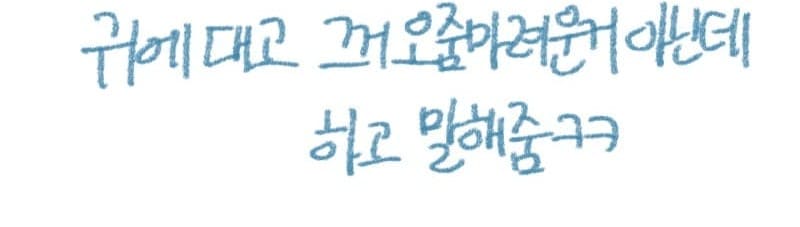 귀에 대고 끄어 오줌마려운거 아닌데
하고 말해줌ㅋㅋ